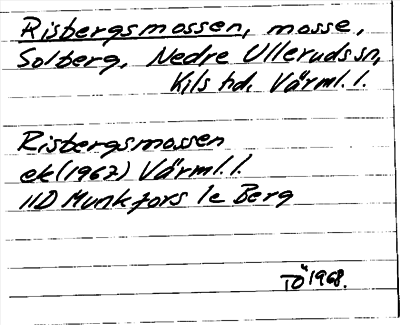 Risbergsmossen, mosse,
Solberg, Nedre Ulleruds sn,
Kils hd. Värml. l.
Risbergsmossen
ek (1967) Värml. l.
11D Munkfors 1e Berg
TÖ 1968.